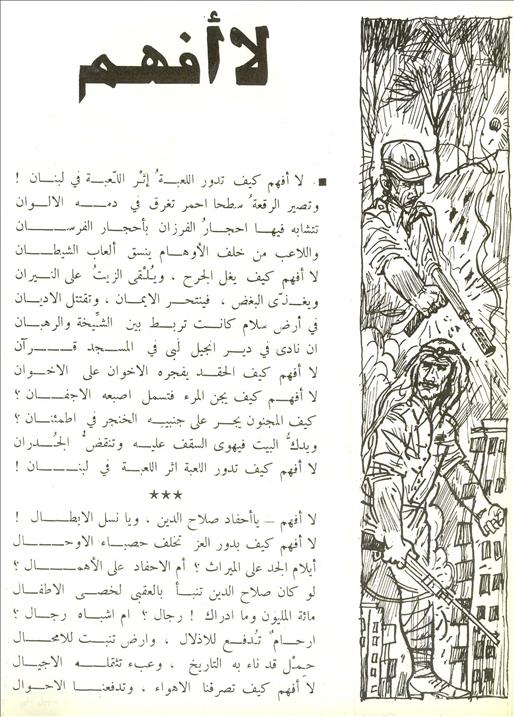 لا أفهم
لا أفهم كيف تدور اللعبةُ إثر اللّعبة في لبنان !
وتصير الرقعةُ سطحا احمر تغرق في دمه الالوان
تتشابه فيها احجارُ الفرزان بأحجار الفرسان
واللاعب من خلف الأوهام ينسق ألعاب الشيطان
لا أفهم كيف يغل الجرح ، ويُلْقى الزيتُ على النيران
ويغذّى البغض ، فينتحر الايمان ، وتقتتل الاديان
في أرض سلام كانت تربط بين الشِّيخة والرهبان
ان نادى في دير انجيل لبى في المسجد قرآن
لا أفهم كيف الحقد يفجره الاخوان على الاخوان
لا أفهم كيف يجن المرء فتسمل اصبعه الاجفان ؟
كيف المجنون يجر على جنبيه الخنجر في اطمئنان ؟
ويدكُّ البيت فيهوى السقف عليه وتنقضُّ الجُدران
لا أفهم كيف تدور اللعبة اثر اللعبة في لبنان !
***
لا أفهم – ياأحفاد صلاح الدين ، ويا نسل الابطال !
لا أفهم كيف بدور العز تخلف حصباء الاوحال
أيلام الجد على الميراث ؟ أم الاحفاد على الأهمال ؟
لو كان صلاح الدين تنبأ بالعقبى لخصى الاطفال
مائة المليون وما ادراك ! رجال ؟ ام اشباه رجال ؟
ارحامٌ تُدفع للاذلال ، وارض تنبت للامحال
حمْل قد ناء به التاريخ ، وعبء تثقله الاجيال
لا أفهم كيف تصرفنا الاهواء ، وتدفعنا الاحوال